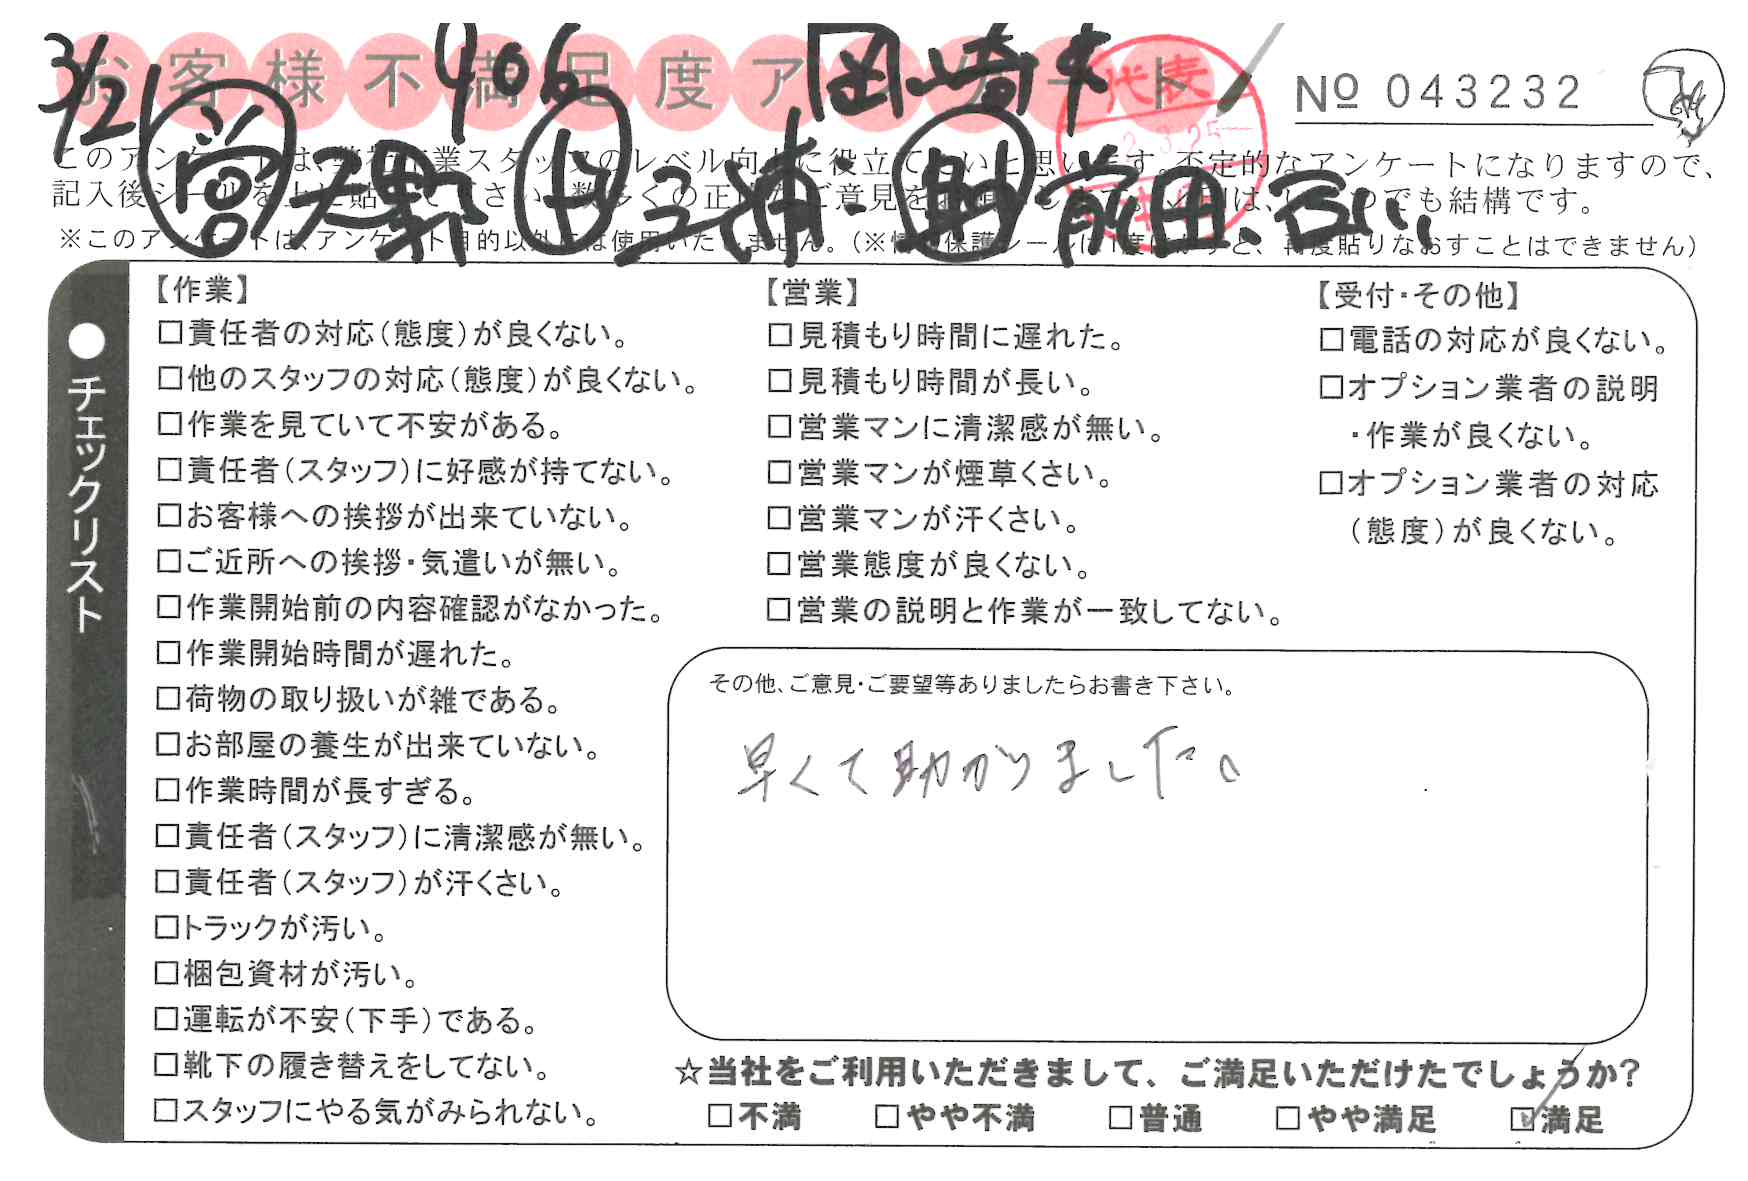 3/21 406 岡崎市
お客様不満足度アンケート
代表
No 043232
営 天野 仕 三浦・助 前田、
このアンケートは、弊社作業スタッフのレベル向上に役立てたいと思います。不定的なアンケートになりますので、
記入後シールを上に貼って下さい。数多くの正直なご意見をお願いします。
でも結構です。
※このアンケートは、アンケート目的以外には使用いたしません。(※情報保護シールは1度はがすと、再度貼りなおすことはできません)
●チェックリスト
【作業】
□責任者の対応(態度)が良くない。
□他のスタッフの対応(態度)が良くない。
□作業を見ていて不安がある。
□責任者(スタッフ)に好感が持てない。
□お客様への挨拶が出来ていない。
□ご近所への挨拶・気遣いが無い。
□作業開始前の内容確認がなかった。
□作業開始時間が遅れた。
□荷物の取り扱いが雑である。
□お部屋の養生が出来ていない。
□作業時間が長すぎる。
□責任者(スタッフ)に清潔感が無い。
□責任者(スタッフ)が汗くさい。
□トラックが汚い。
□梱包資材が汚い。
□運転が不安(下手)である。
□靴下の履き替えをしてない。
□スタッフにやる気がみられない。
【営業】
□見積もり時間に遅れた。
□見積もり時間が長い。
□営業マンに清潔感が無い。
□営業マンが煙草くさい。
□営業マンが汗くさい。
□営業態度が良くない。
□営業の説明と作業が一致してない。
【受付・その他】
□電話の対応が良くない。
□オプション業者の説明
・作業が良くない。
□オプション業者の対応
(態度)が良くない。
その他、ご意見・ご要望等ありましたらお書き下さい。
早くて助かりました。
☆当社をご利用いただきまして、ご満足いただけたでしょうか?
□不満 □やや不満 □普通 □やや満足 ☑満足